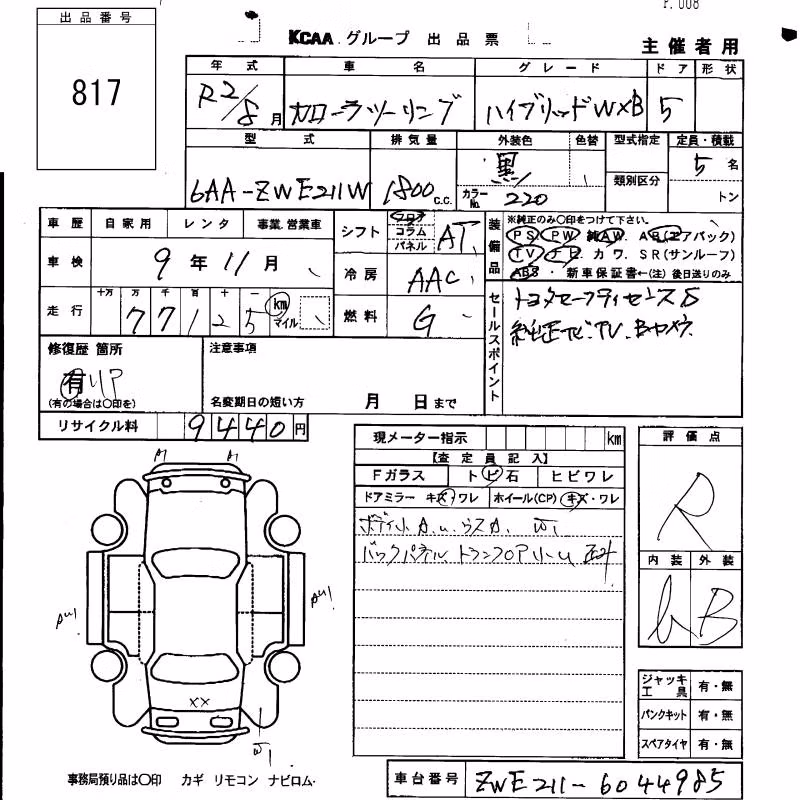 P. 008
出品番号
817
KCAA グループ 出品票
主催者用
年式 車名 グレード ドア 形状
R2/8月 カローラツーリング ハイブリッドW×B 5
型式 排気量 外装色 色替 型式指定 定員・積載
6AA-ZWE211W 1800 c.c. 黒 カラーNo. 220 類別区分 5名 トン
車歴 自家用 レンタ 事業.営業車
車検 9年11月
走行 十万 万 千 百 十 一 77125 km マイル
シフト フロア コラム パネル AT
冷房 AAC
燃料 G
装備品
※純正のみ○印をつけて下さい。
PS PW 純AW. AB(エアバック)
TV ナビ. カワ. SR(サンルーフ)
ABS ・ 新車保証書←(注) 後日送りのみ
セールスポイント
トヨタセーフティセンスS
純正ナビ.TV.Bカメラ.
修復歴 箇所
有 リア
(有の場合は○印を)
注意事項
名変期日の短い方 月 日まで
リサイクル料 9440円
現メーター指示 km
【査定員記入】
Fガラス トビ石 ヒビワレ
ドアミラー キズ・ワレ ホイール(CP) キズ・ワレ
ボディ小A.u.ウスA. W1
バックパネル トランクフロアリーu
評価点
R
内装 外装
B
A1 A1
AU1
AU1
XX
W1
ジャッキ工具 有・無
パンクキット 有・無
スペアタイヤ 有・無
事務局預り品は○印 カギ リモコン ナビロム・
車台番号 ZWE211-6044985